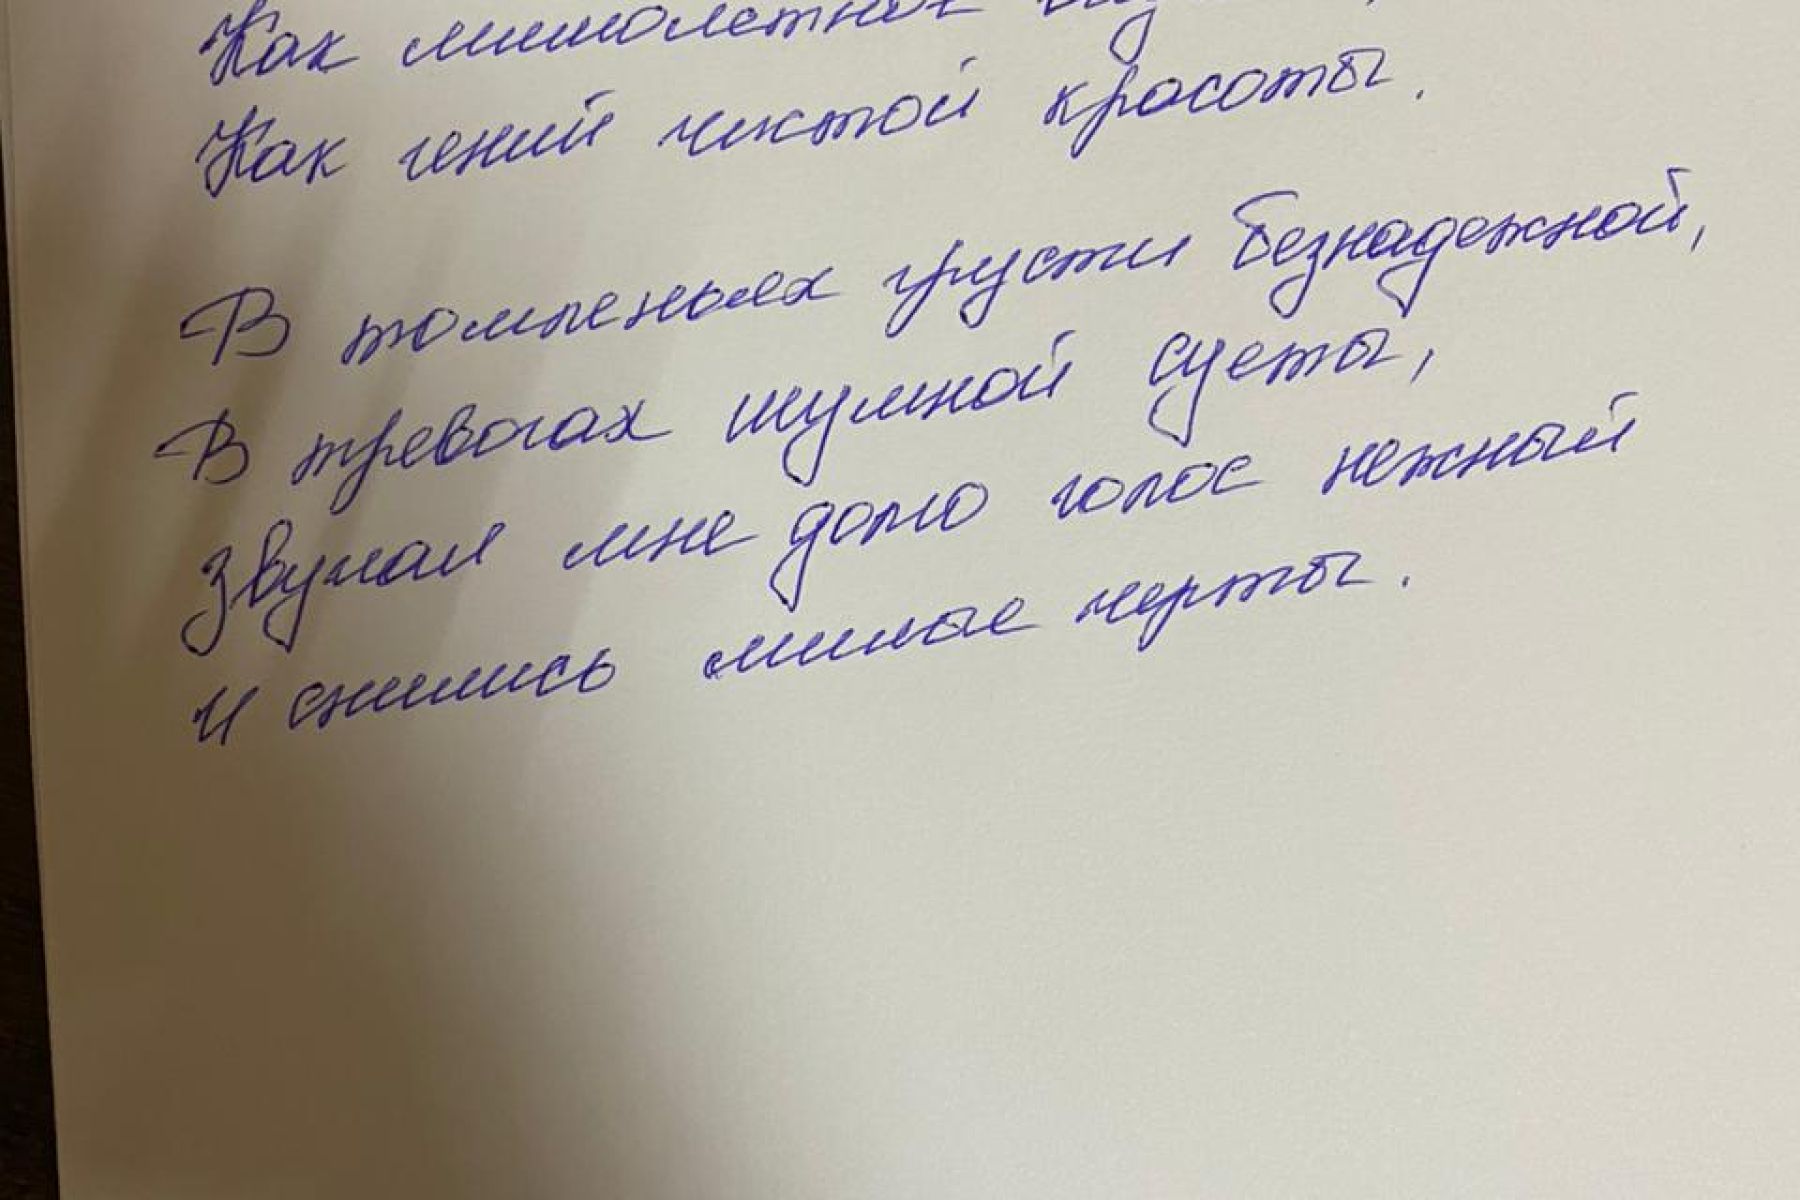 Как мимолетное
Как гений чистой красоты.
В томленьях грусти безнадежной,
В тревогах шумной суеты,
Звучал мне долго голос нежный
И снились милые черты.